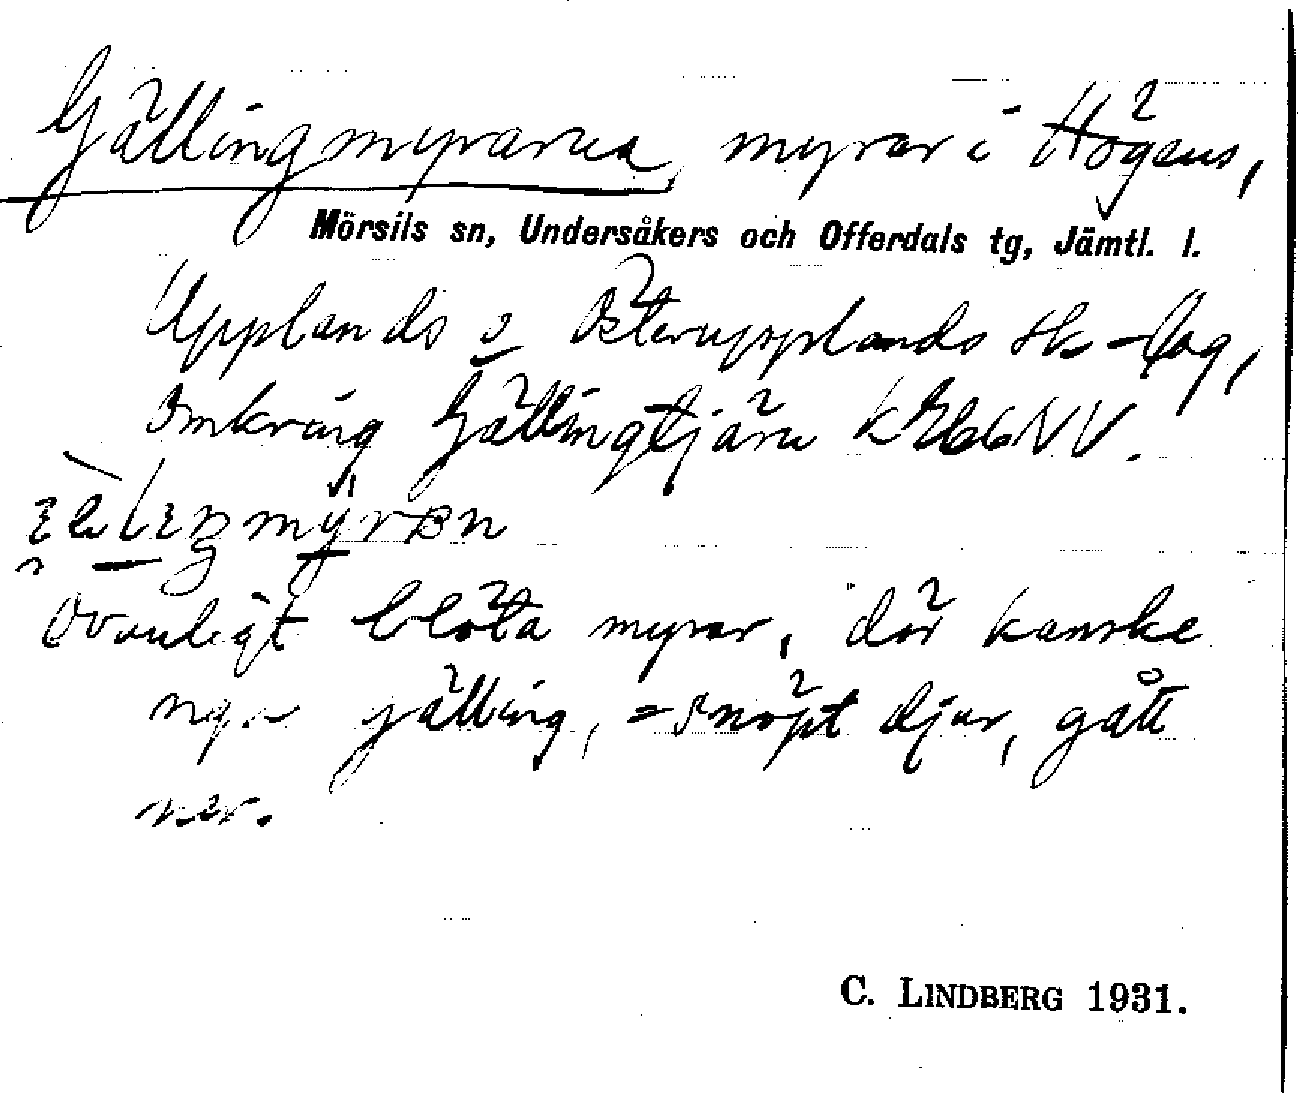 Gällingmyrarna, myrar i Högens,
Mörsils sn, Undersåkers och Offerdals tg, Jämtl. l.
Upplands o Österupplands sk-lag,
omkring Gällingtjärn
Ovanligt blöta myrar, där kanske
ngr gälling, = snöpt djur, gått
ner.
C. LINDBERG 1931.